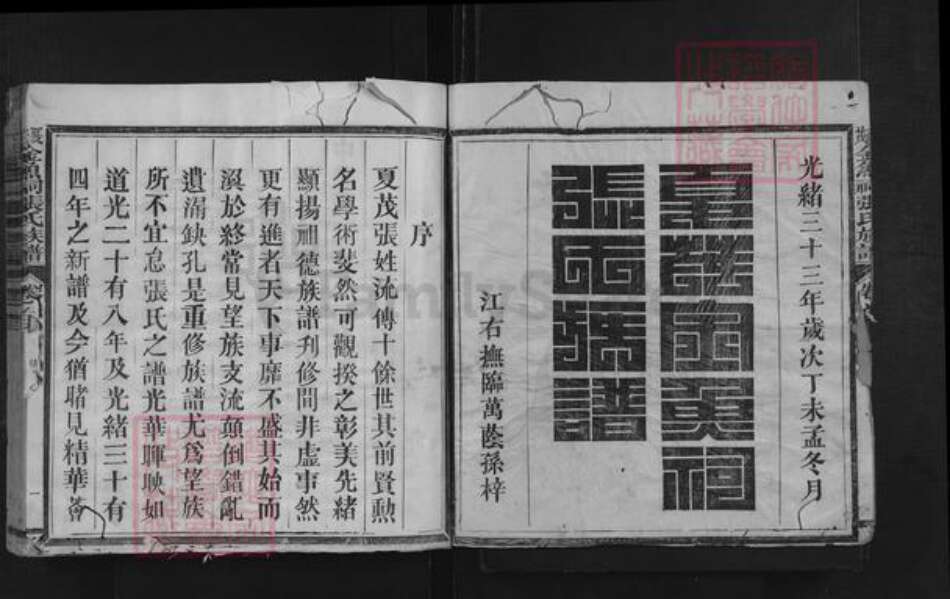 光緒三十三年歲次丁未孟冬月
張氏族譜
江右撫臨萬蔭孫梓
序
夏茂張姓流傳十餘世其前賢勳
名學術斐然可觀揆之彰美先緒
顯揚祖德族譜刋修間非虛事然
更有進者天下事靡不盛其始而
渙於終常見望族支流顛倒錯亂
遺漏缺孔是重修族譜尤為望族
所不宜怠張氏之譜光華暉映如
道光二十有八年及光緒三十有
四年之新譜及今猶睹見精華薈